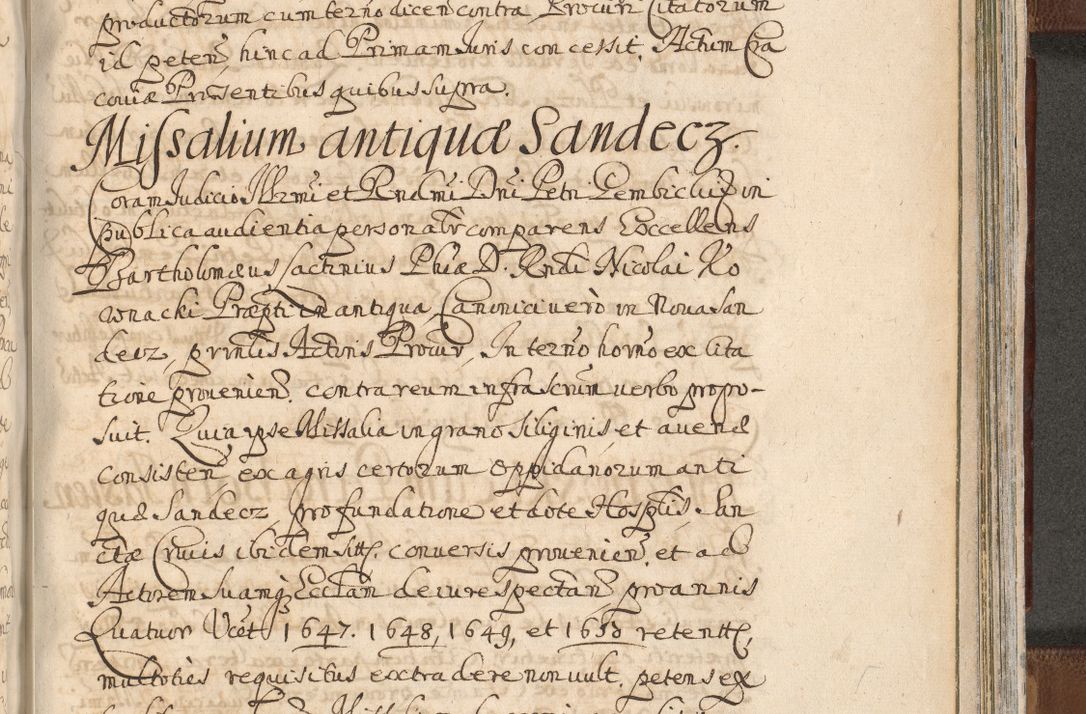 productorum cum terno dicen contra Procur Citatorum
id peten, hinc ad Primam Juris concessit. Actum Cra
coviæ Præsentibus quibus supra.
Missalium antiquæ Sandecz.
Coram Judicio Illrmi et Rndmi Dni Petri Gembicki
publica audientia personalr comparens Excellens
Bartholomæus Lactinius Phiæ D. Rndi Nicolai Ko
wnacki Præpti in antiqua, Canonici verò in Nova San
decz, prinlis Actoris Procur, In terno horno ex Cita
tione provenien. contra reum infrascrum verbo propo-
suit. Quia ipse Missalia in grano siliginis et avenæ
consisten ex agris certorum oppidanorum anti
quæ Sandecz, pro fundatione et dote Hosplis San
ctæ Crucis ibidem sitt, conversis provenien. et ad
Actorem suamq Ecclam de iure spectan pro annis
Quatuor Vcet 1647. 1648, 1649, et 1650 retentt,
multoties requisitus extradere non vult, petens ex